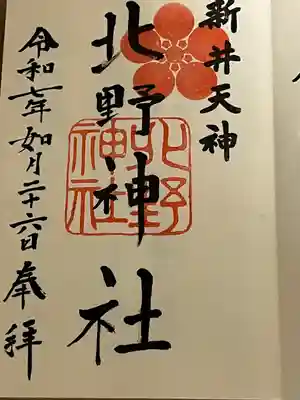 新井天神
北野神社
北野神社
令和七年如月二十六日奉拝